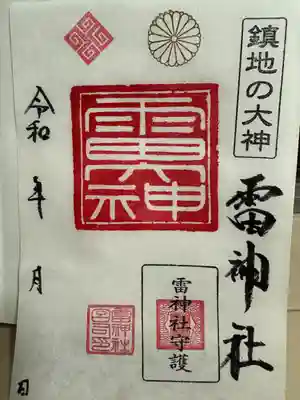 鎮地の大神
雷神社
雷神社
雷神社守護
令和 年 月
日